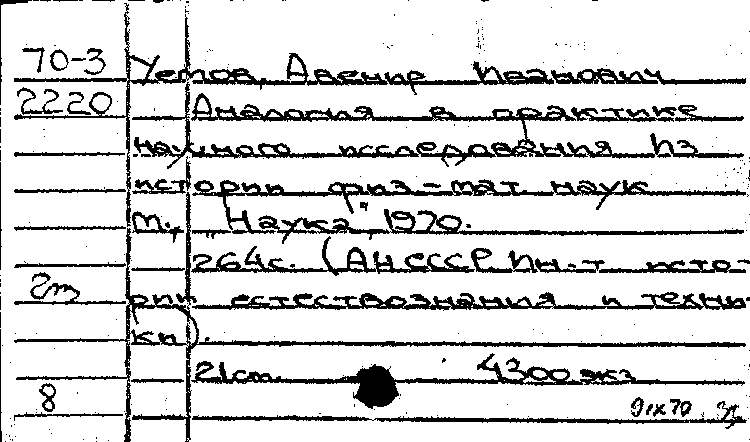 70-3 Уемов, Авенир Иванович
2220 Аналогия в практике
научного исследования Из
истории физ-мат. наук
М., "Наука", 1970.
264с. (АН СССР Ин-т исто-
2т рии естествознания и техни-
ки).
21cm. 4300 экз
8
9IX70